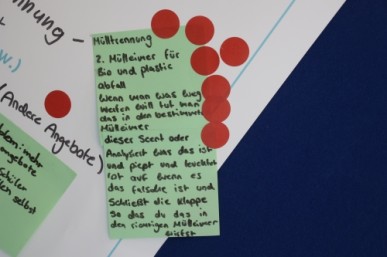 nnung -
w.)
(Andere
Angebote)
Mülltrennung
2. Mülleimer für
Bio und plastic
abfall
Wenn man was weg
werfen will tut man
das in den bestimmten
Mülleimer
dieser Scent oder
Analysiert was das ist
und piept und leuchtet
rot auf wenn es
das falsche ist und
Schließt die Klappe
So das du das in
den richtigen Mülleimer
angebote
Schüler
selbst